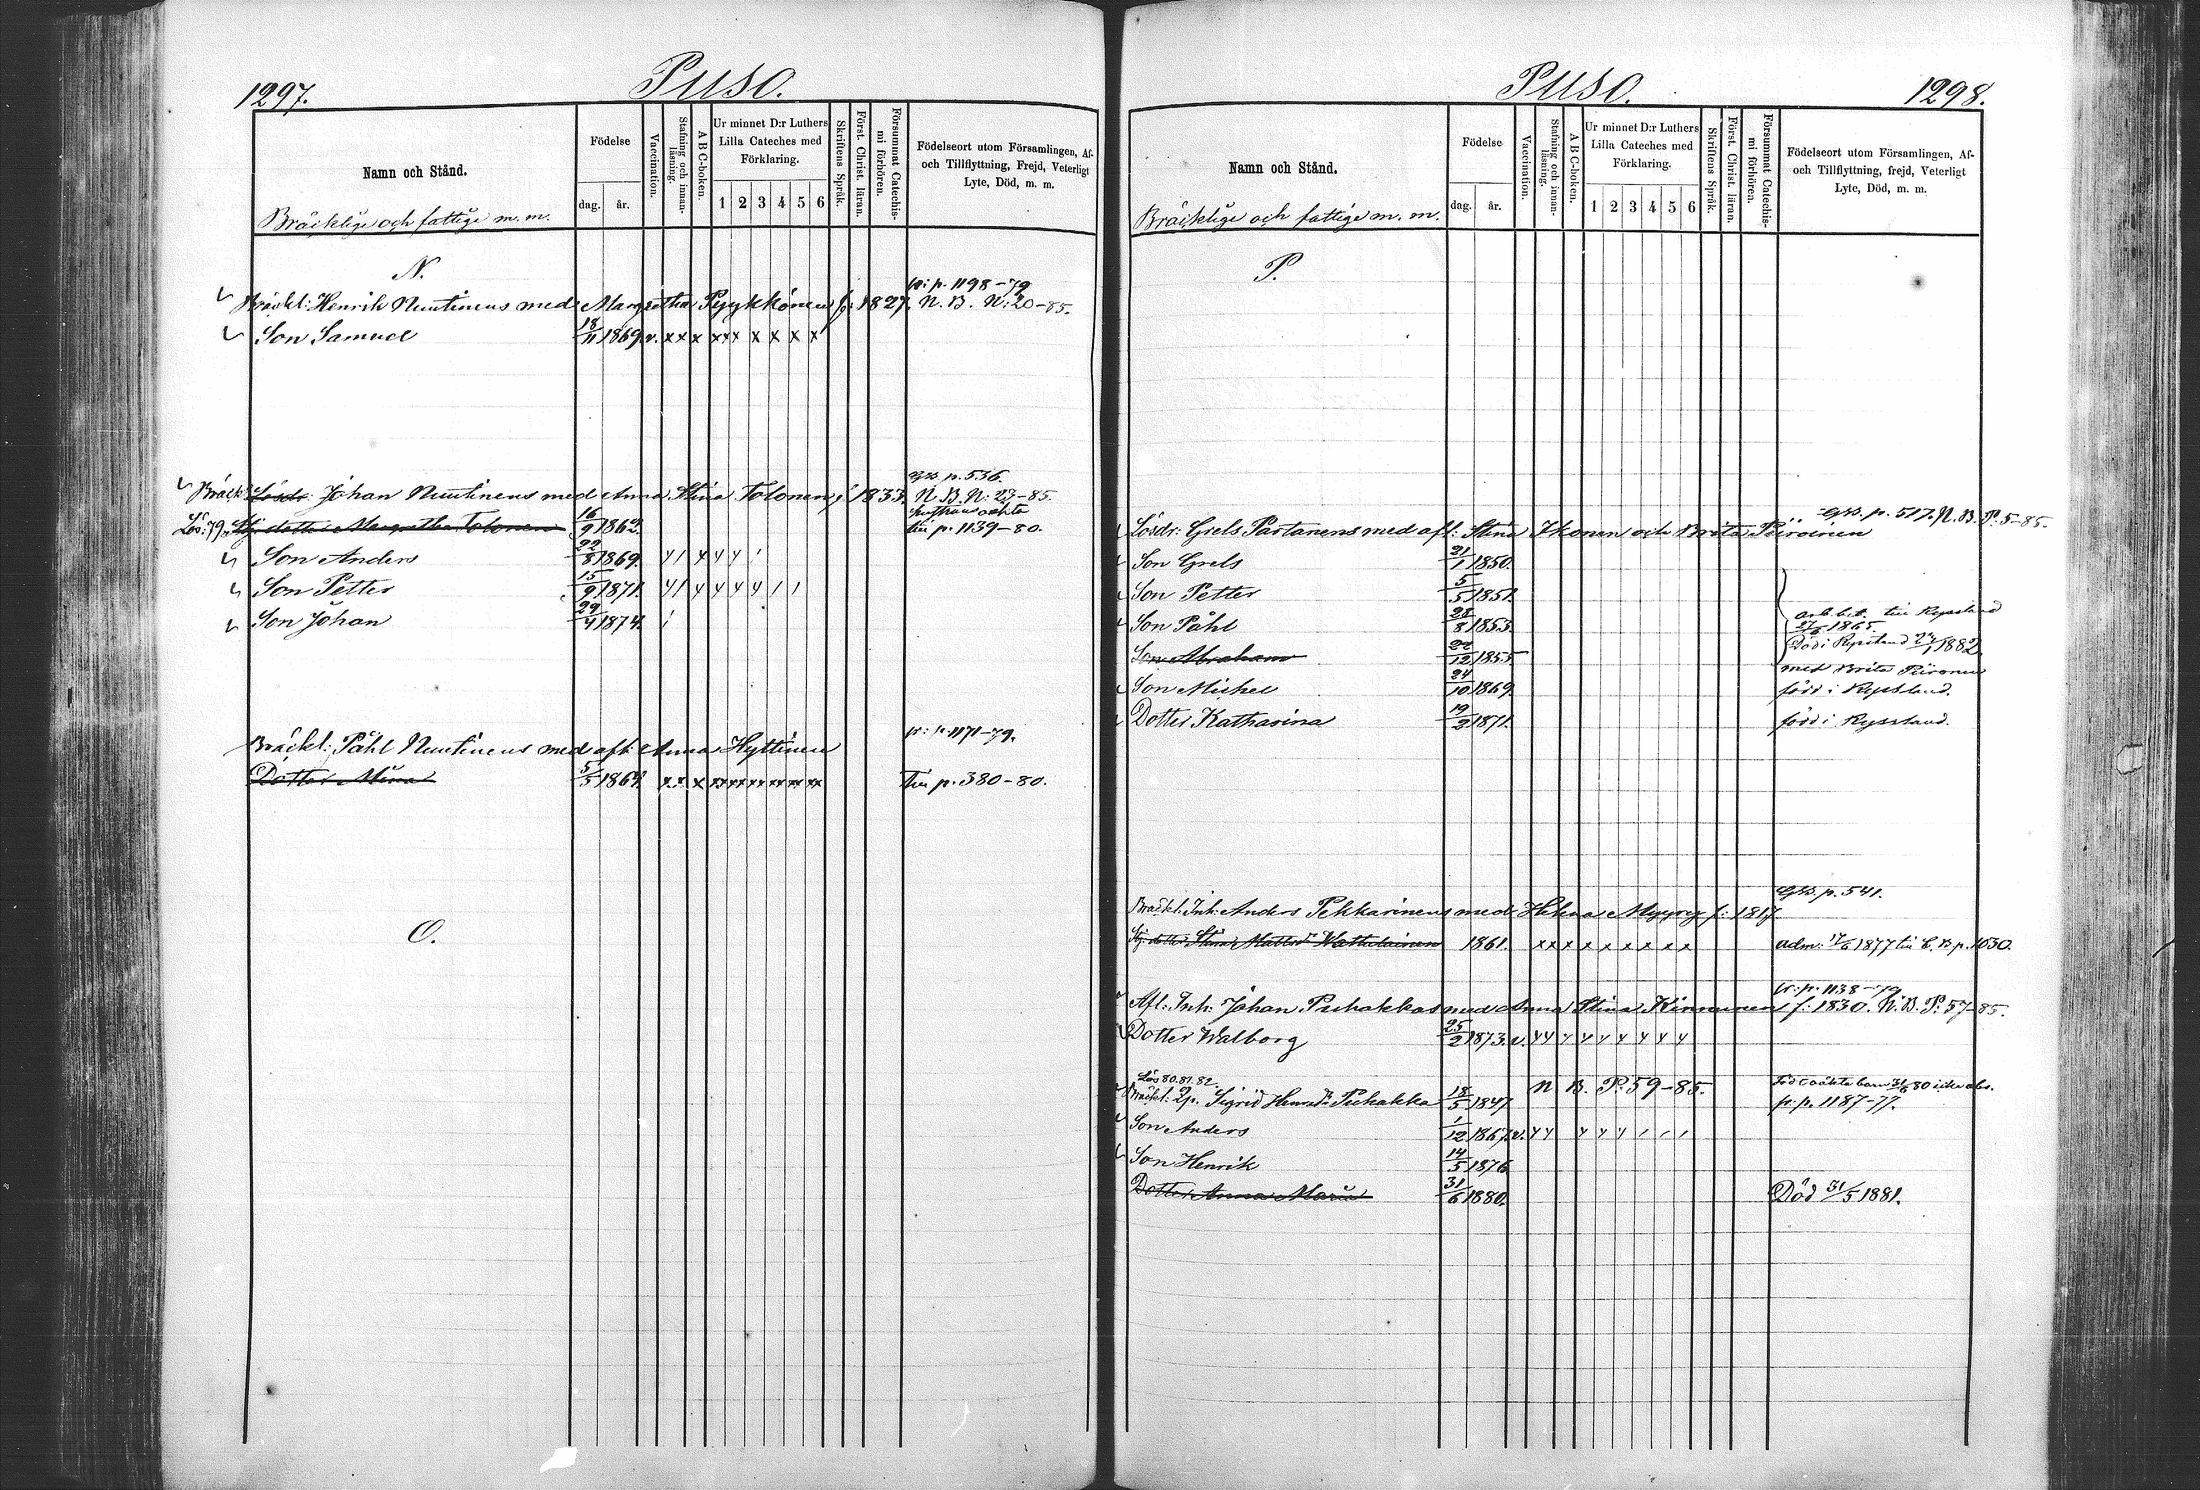 1297.
Puso.
Namn och Stånd.
Bräcklige och fattige m. m.
Födelse
dag. år.
Vaccination.
Stafning och innanläsning.
A B C-boken.
Ur minnet D:r Luthers Lilla Cateches med Förklaring.
1 2 3 4 5 6
Skriftens Språk.
Först. Christ. läran.
Försummat Catechismi förhören.
Födelseort utom Församlingen, Af- och Tillflyttning, Frejd, Veterligt Lyte, Död, m. m.
N.
fr: p. 1198-79
Bräckl: Henrik Nuutinens med Margretha Pyykkönen f: 1827. N. B. N: 20-85.
Son Samuel 18/11 1869. v. x x x x x x x x x x
Gb. p. 536.
Bräck: Lösdr: Johan Nuutinens med Anna Stina Tolonen f 1833. N. B. N: 27-85.
Lös: 79. Sty. dotter Margretha Tolonen 16/9 1862. till p. 1139-80.
Son Anders 22/8 1869.
Son Petter 15/9 1871.
Son Johan 29/4 1874.
fr: p. 1171-79.
Bräckl: Påhl Nuutinens med afl: Anna Hyttinen
Dotter Mina 5/5 1864. Till p. 380-80.
O.
Puso.
1298.
Namn och Stånd.
Bräcklige och fattige m. m.
Födelse
dag. år.
Vaccination.
Stafning och innanläsning.
A B C-boken.
Ur minnet D:r Luthers Lilla Cateches med Förklaring.
1 2 3 4 5 6
Skriftens Språk.
Först. Christ. läran.
Försummat Catechismi förhören.
Födelseort utom Församlingen, Af- och Tillflyttning, frejd, Veterligt Lyte, Död, m. m.
P.
Gb. p. 517. N. B. P: 5-85.
Lösdr: Grels Partanens med afl: Stina Ikonen och Brita Piiroinen
Son Grels 21/1 1850.
Son Petter 5/5 1851.
Son Påhl 28/8 1853. arb. bet. till Ryssland 1865.
Son Abraham 22/12 1855 Död i Ryssland 1882
med Brita Piironen
Son Michel 24/10 1869. född i Ryssland.
Dotter Katharina 19/2 1871. född i Ryssland.
Gb. p. 541.
Bräckl: Inh: Anders Pekkarinens med Helena Myyry f: 1817
Sty. dotter Stina Mattsdr Wattulainen 1861. x x x x x x x x x adm: 17/6 1877 till C. B p. 1030.
fr: p. 1138-79
Afl: Inh: Johan Puhakkas med Anna Stina Kinnunen f: 1830. N. B. P: 57-85.
Dotter Walborg 25/2 1873. v.
Lös 80. 81. 82.
Bräckl: Qp. Sigrid Henrdr Puhakka 18/5 1847 N B. P: 59-85. fr: p. 1187-77.
Son Anders 1/12 1867. v.
Son Henrik 14/5 1876
Dotter Anna Maria 31/6 1880. Död 31/5 1881.